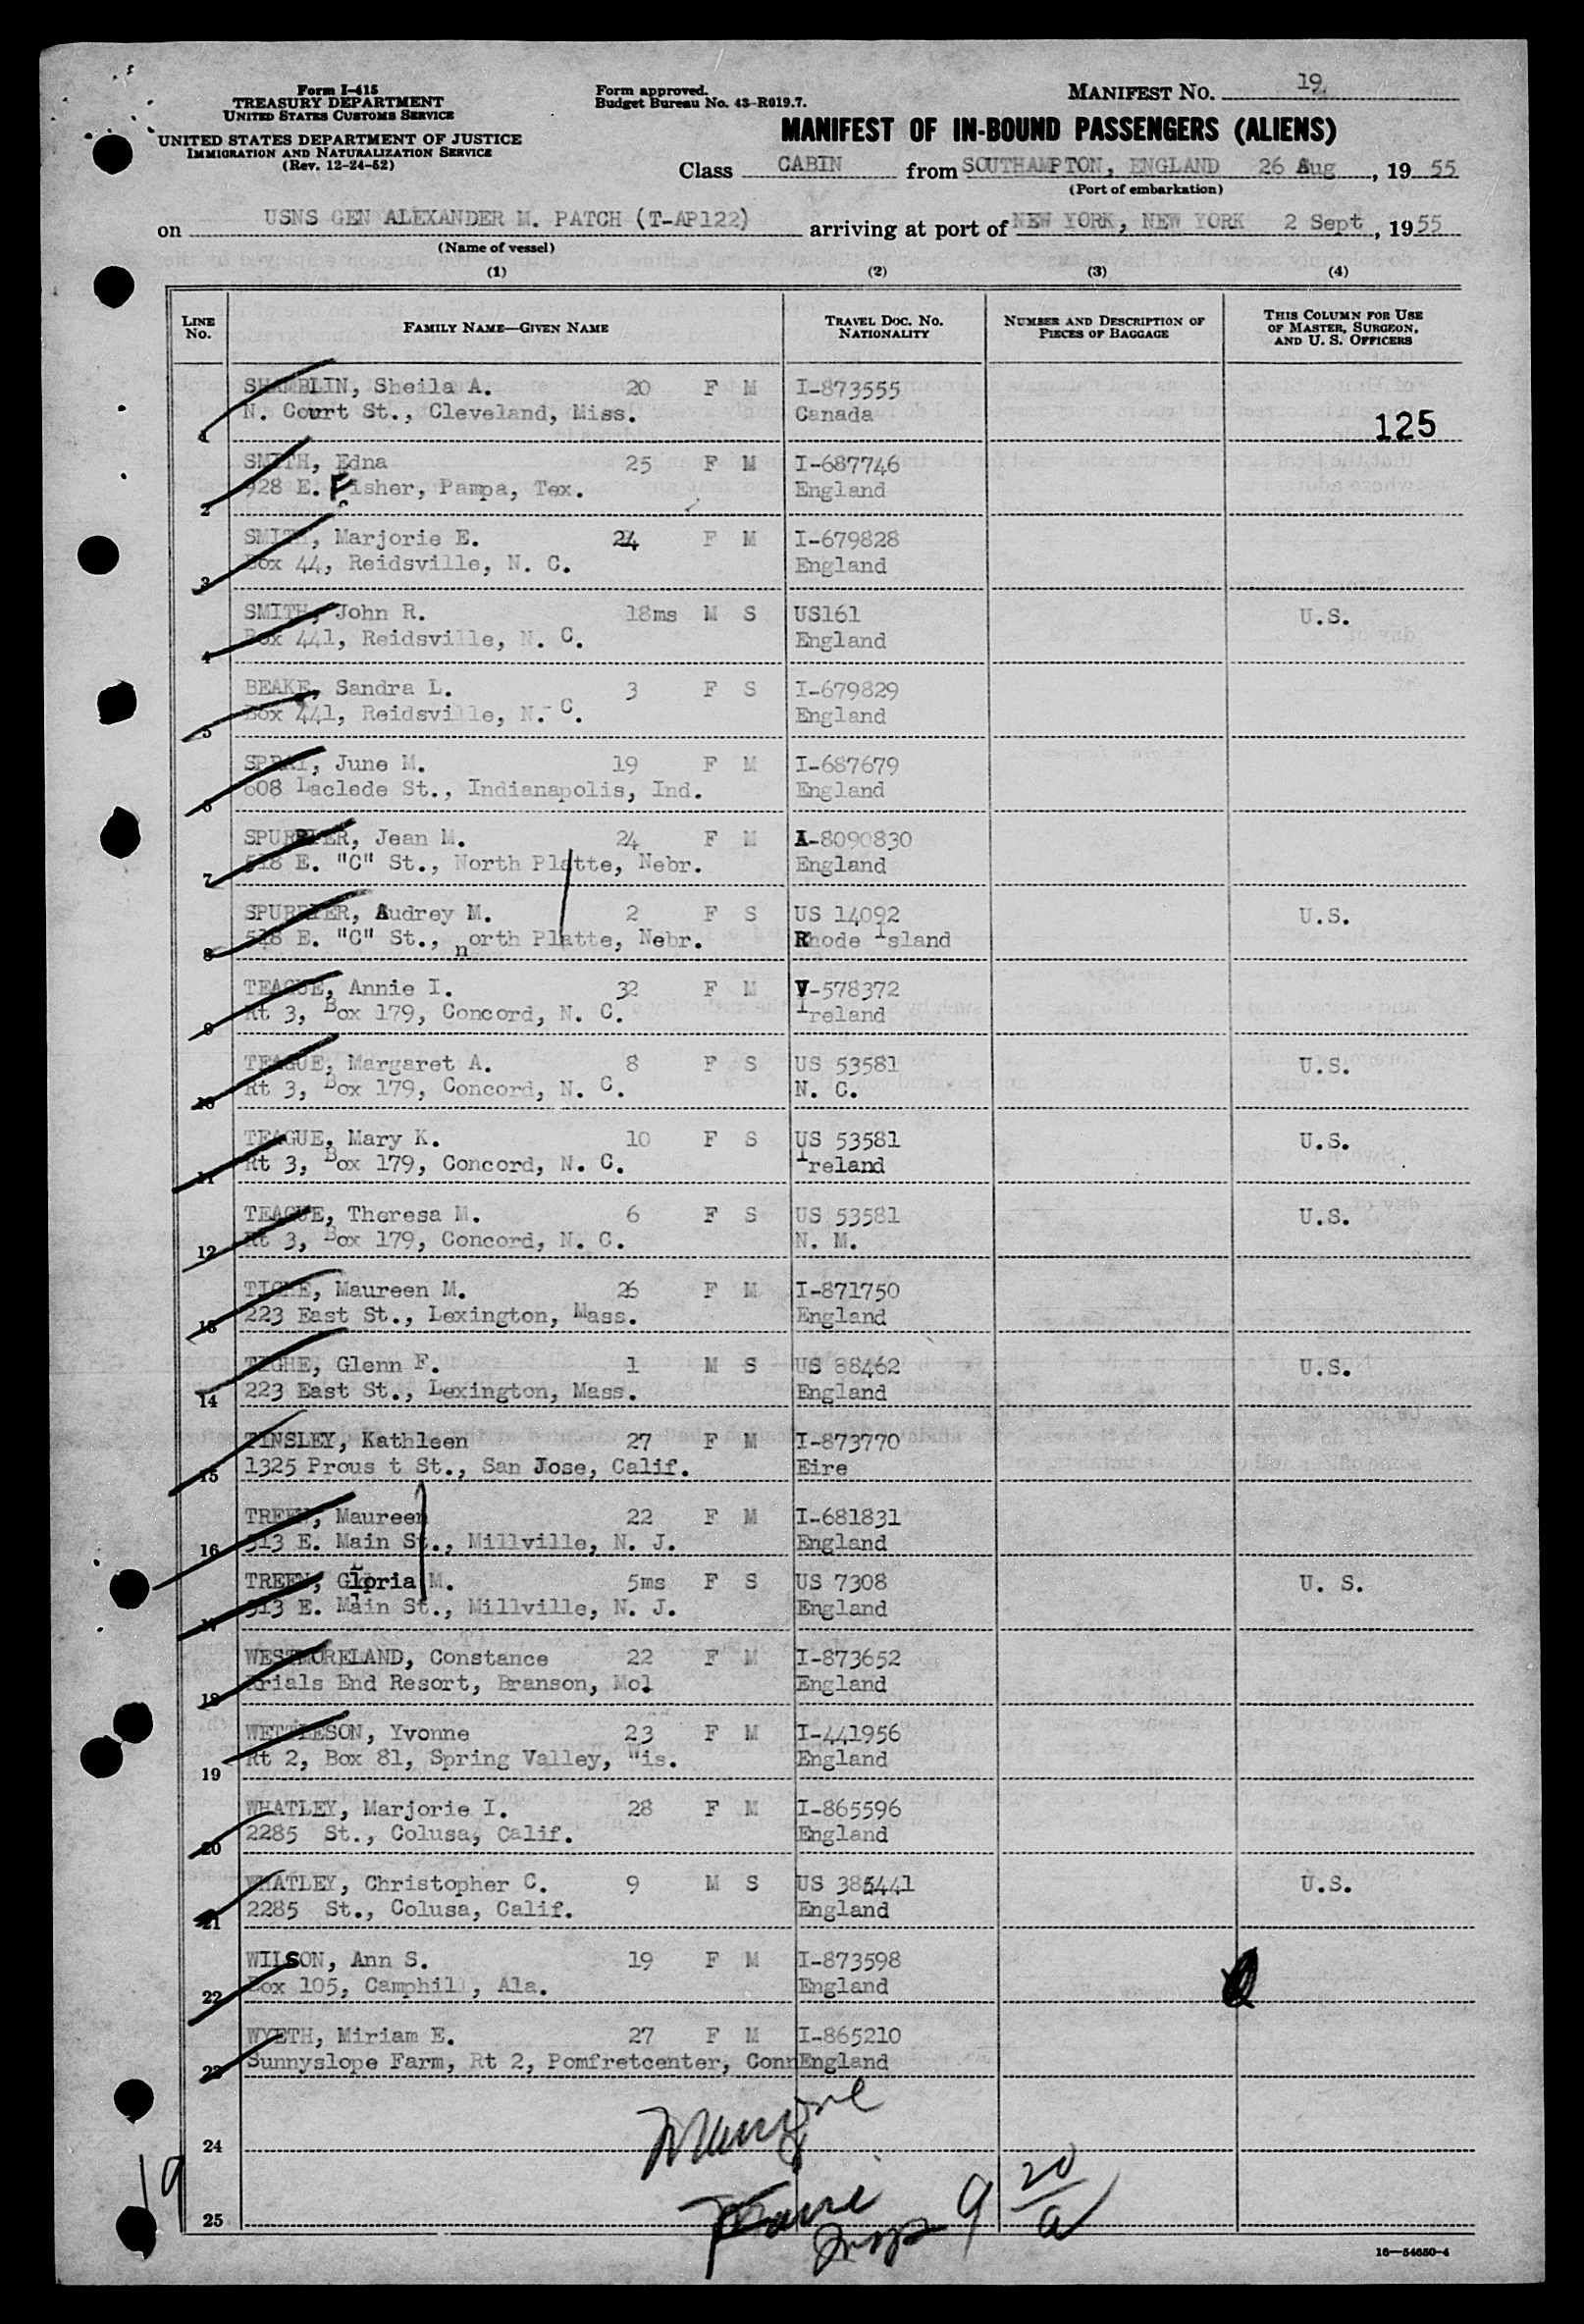 Form I-415
TREASURY DEPARTMENT
UNITED STATES CUSTOMS SERVICE
UNITED STATES DEPARTMENT OF JUSTICE
IMMIGRATION AND NATURALIZATION SERVICE
(Rev. 12-24-52)
Form approved.
Budget Bureau No. 43-R019.7.
MANIFEST NO. 19
MANIFEST OF IN-BOUND PASSENGERS (ALIENS)
Class CABIN from SOUTHAMPTON, ENGLAND 26 Aug, 1955
(Port of embarkation)
on USNS GEN ALEXANDER M. PATCH (T-AP122) arriving at port of NEW YORK, NEW YORK 2 Sept, 1955
(Name of vessel)
(1) (2) (3) (4)
LINE NO. FAMILY NAME—GIVEN NAME TRAVEL DOC. NO. NATIONALITY NUMBER AND DESCRIPTION OF PIECES OF BAGGAGE THIS COLUMN FOR USE OF MASTER, SURGEON, AND U. S. OFFICERS
SHAMBLIN, Sheila A. 20 F M I-873555
1 N. Court St., Cleveland, Miss. Canada 125
SMITH, Edna 25 F M I-687746
2 928 E. Fisher, Pampa, Tex. England
SMITH, Marjorie E. 24 F M I-679828
3 Box 44, Reidsville, N. C. England
SMITH, John R. 18ms M S US161 U.S.
4 Box 441, Reidsville, N. C. England
BEAKE, Sandra L. 3 F S I-679829
5 Box 441, Reidsville, N. C. England
SPRAY, June M. 19 F M I-687679
6 608 Laclede St., Indianapolis, Ind. England
Jean M. 24 F M A-8090830
7 518 E. "C" St., North Platte, Nebr. England
Audrey M. 2 F S US 14092 U.S.
8 518 E. "C" St., north Platte, Nebr. Rhode Island
TEAGUE, Annie I. 32 F M V-578372
9 Rt 3, Box 179, Concord, N. C. Ireland
TEAGUE, Margaret A. 8 F S US 53581 U.S.
10 Rt 3, Box 179, Concord, N. C. N. C.
TEAGUE, Mary K. 10 F S US 53581 U.S.
11 Rt 3, Box 179, Concord, N. C. Ireland
TEAGUE, Theresa M. 6 F S US 53581 U.S.
12 Rt 3, Box 179, Concord, N. C. N. M.
TIGHE, Maureen M. 26 F M I-871750
13 223 East St., Lexington, Mass. England
TIGHE, Glenn F. 1 M S US 88462 U.S.
14 223 East St., Lexington, Mass. England
TINSLEY, Kathleen 27 F M I-873770
15 1325 Prous t St., San Jose, Calif. Eire
TREEN, Maureen 22 F M I-681831
16 513 E. Main St., Millville, N. J. England
TREEN, Gloria M. 5ms F S US 7308 U. S.
17 513 E. Main St., Millville, N. J. England
WESTMORELAND, Constance 22 F M I-873652
18 Trials End Resort, Branson, Mo. England
WETTLESON, Yvonne 23 F M I-441956
19 Rt 2, Box 81, Spring Valley, "is. England
WHATLEY, Marjorie I. 28 F M I-865596
20 2285 St., Colusa, Calif. England
WHATLEY, Christopher C. 9 M S US 385441 U.S.
21 2285 St., Colusa, Calif. England
WILSON, Ann S. 19 F M I-873598
22 Box 105, Camphill, Ala. England
WYETH, Miriam E. 27 F M I-865210
23 Sunnyslope Farm, Rt 2, Pomfretcenter, Conn England
24
25
19
Insp 9 20/a
16—54650-4